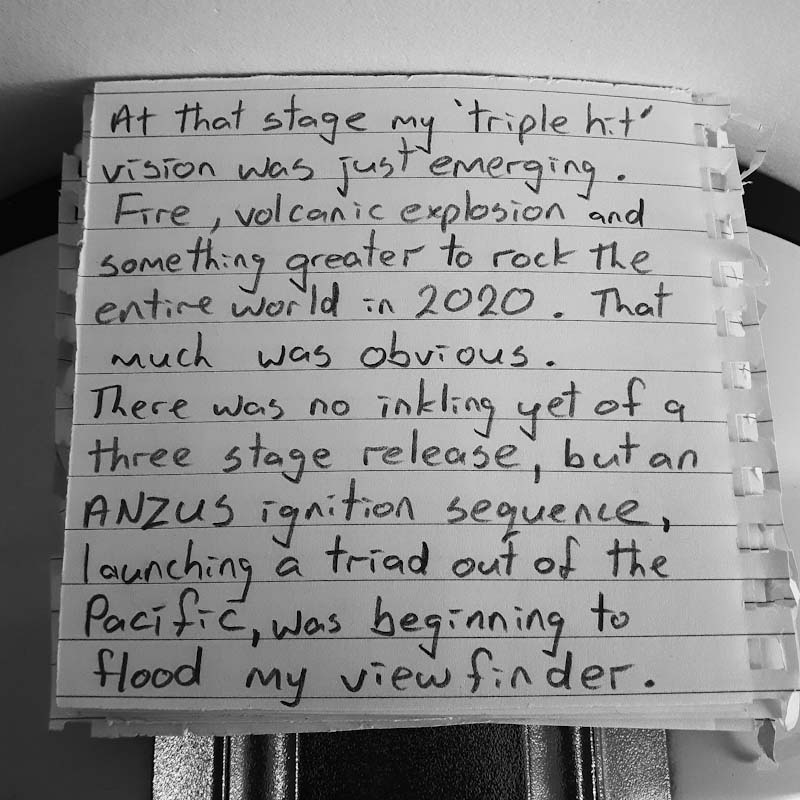 At that stage my 'triple hit'
vision was just emerging.
Fire, volcanic explosion and
something greater to rock the
entire world in 2020. That
much was obvious.
There was no inkling yet of a
three stage release, but an
ANZUS ignition sequence,
launching a triad out of the
Pacific, was beginning to
flood my viewfinder.